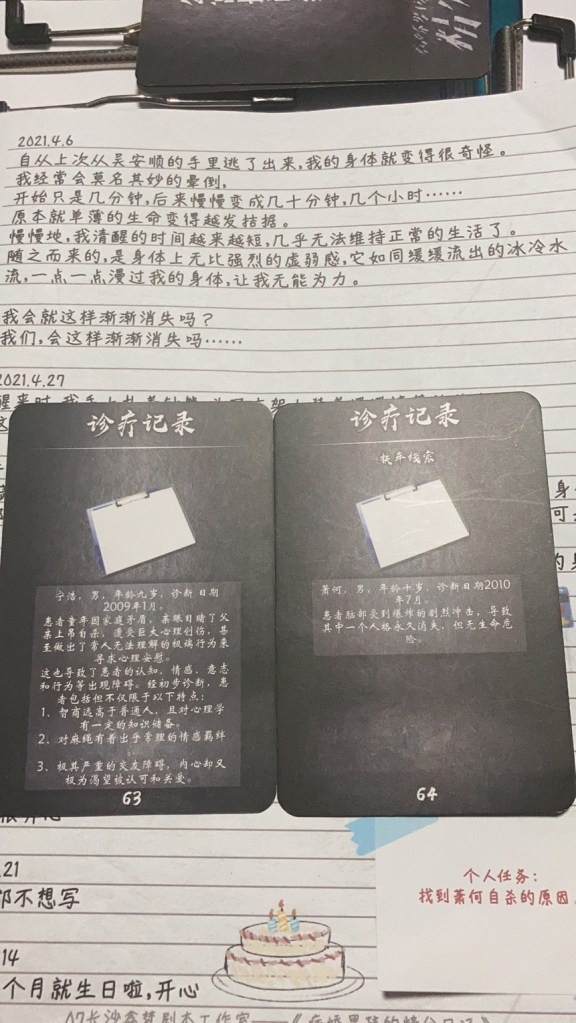 2021.4.6
自从上次从吴安顺的手里逃了出来,我的身体就变得很奇怪。
我经常会莫名其妙的晕倒,
开始只是几分钟,后来慢慢变成几十分钟,几个小时……
原本就单薄的生命变得越发拮据。
慢慢地,我清醒的时间越来越短,几乎无法维持正常的生活了。
随之而来的,是身体上无比强烈的虚弱感,它如同缓缓流出的冰冷水
流,一点一点漫过我的身体,让我无能为力。
我会就这样渐渐消失吗?
我们,会这样渐渐消失吗……
2021.4.27
诊疗记录
宁浩,男,年龄九岁,诊断日期
2009年1月。
患者童年因家庭矛盾,亲眼目睹了父
亲上吊自杀,遭受巨大心理创伤,甚
至做出了常人无法理解的极端行为来
寻求心理安慰。
这也导致了患者的认知、情感、意志
和行为等出现障碍。经初步诊断,患
者包括但不仅限于以下特点:
1、智商远高于普通人,且对心理学
有一定的知识储备。
2、对麻绳有着出乎常理的情感羁绊
3、极其严重的交友障碍,内心却又
极为渴望被认可和关爱。
63
诊疗记录
萧何,男,年龄十岁,诊断日期2010
年7月。
患者脑部受到爆炸的剧烈冲击,导致
其中一个人格永久消失,但无生命危
险。
64
21
不想写
14
个月就生日啦,开心
个人任务:
找到萧何自杀的原因